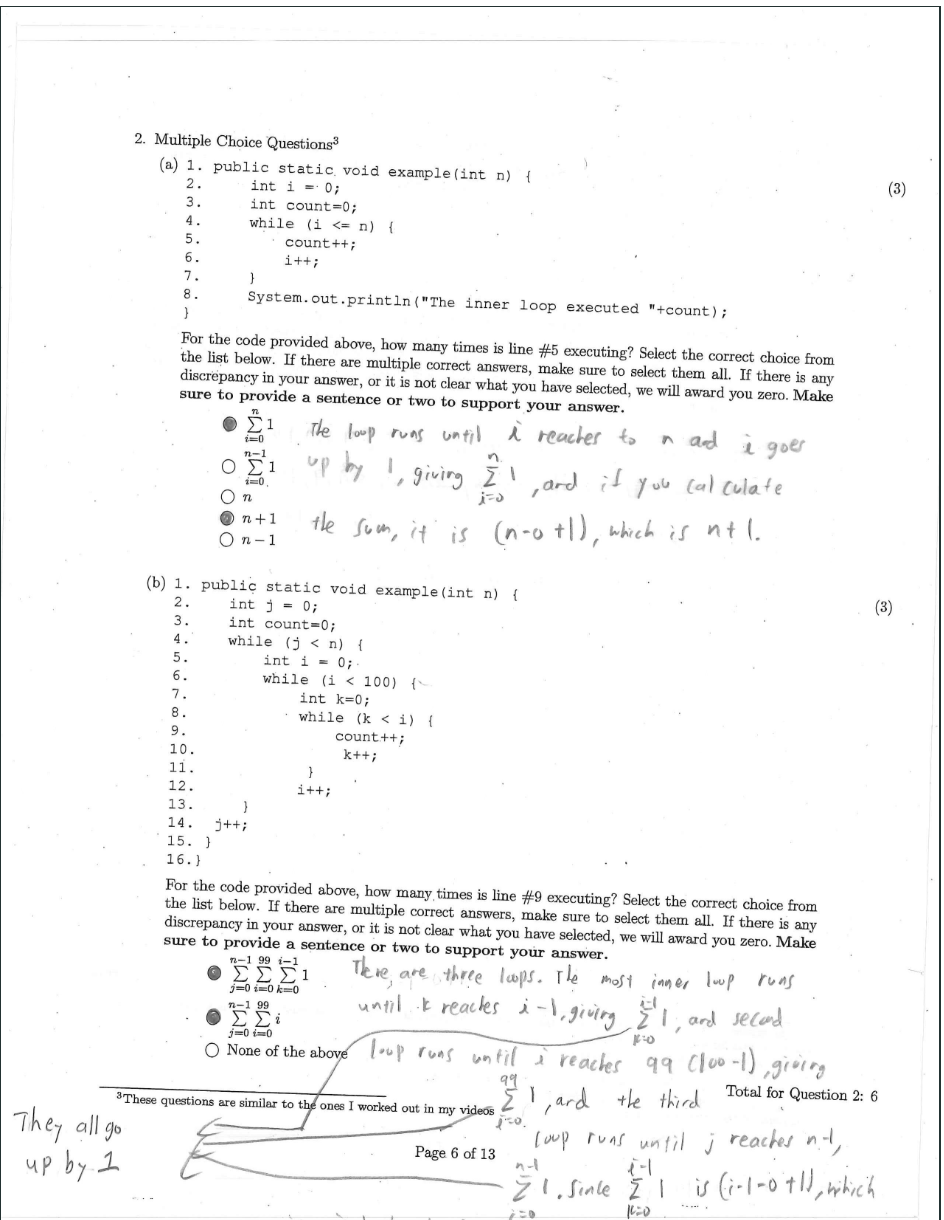 2. Multiple Choice Questions³
(a) 1. public static void example(int n) {
(3)
2. int i = 0;
3. int count=0;
4. while (i <= n) {
5. count++;
6. i++;
7. }
8. System.out.println("The inner loop executed "+count);
}
For the code provided above, how many times is line #5 executing? Select the correct choice from
the list below. If there are multiple correct answers, make sure to select them all. If there is any
discrepancy in your answer, or it is not clear what you have selected, we will award you zero. Make
sure to provide a sentence or two to support your answer.
● n∑i=0 1 The loop runs until i reaches to n and i goes
○ n−1∑i=0 1 up by 1, giving n∑i=0 1, and if you calculate
○ n
● n + 1 the sum, it is (n-0+1), which is n+1.
○ n − 1
(b) 1. public static void example(int n) {
(3)
2. int j = 0;
3. int count=0;
4. while (j < n) {
5. int i = 0;
6. while (i < 100) {
7. int k=0;
8. while (k < i) {
9. count++;
10. k++;
11. }
12. i++;
13. }
14. j++;
15. }
16.}
For the code provided above, how many times is line #9 executing? Select the correct choice from
the list below. If there are multiple correct answers, make sure to select them all. If there is any
discrepancy in your answer, or it is not clear what you have selected, we will award you zero. Make
sure to provide a sentence or two to support your answer.
● n−1∑j=0 99∑i=0 i−1∑k=0 1 There are three loops. The most inner loop runs
● n−1∑j=0 99∑i=0 i until k reaches i-1, giving i-1∑k=0 1, and second
○ None of the above loop runs until i reaches 99 (100-1), giving
99∑i=0 1, and the third
Total for Question 2: 6
³These questions are similar to the ones I worked out in my videos
They all go
up by 1
loop runs until j reaches n-1,
Page 6 of 13
n-1∑j=0 1. Since i-1∑k=0 1 is (i-1-0+1), which